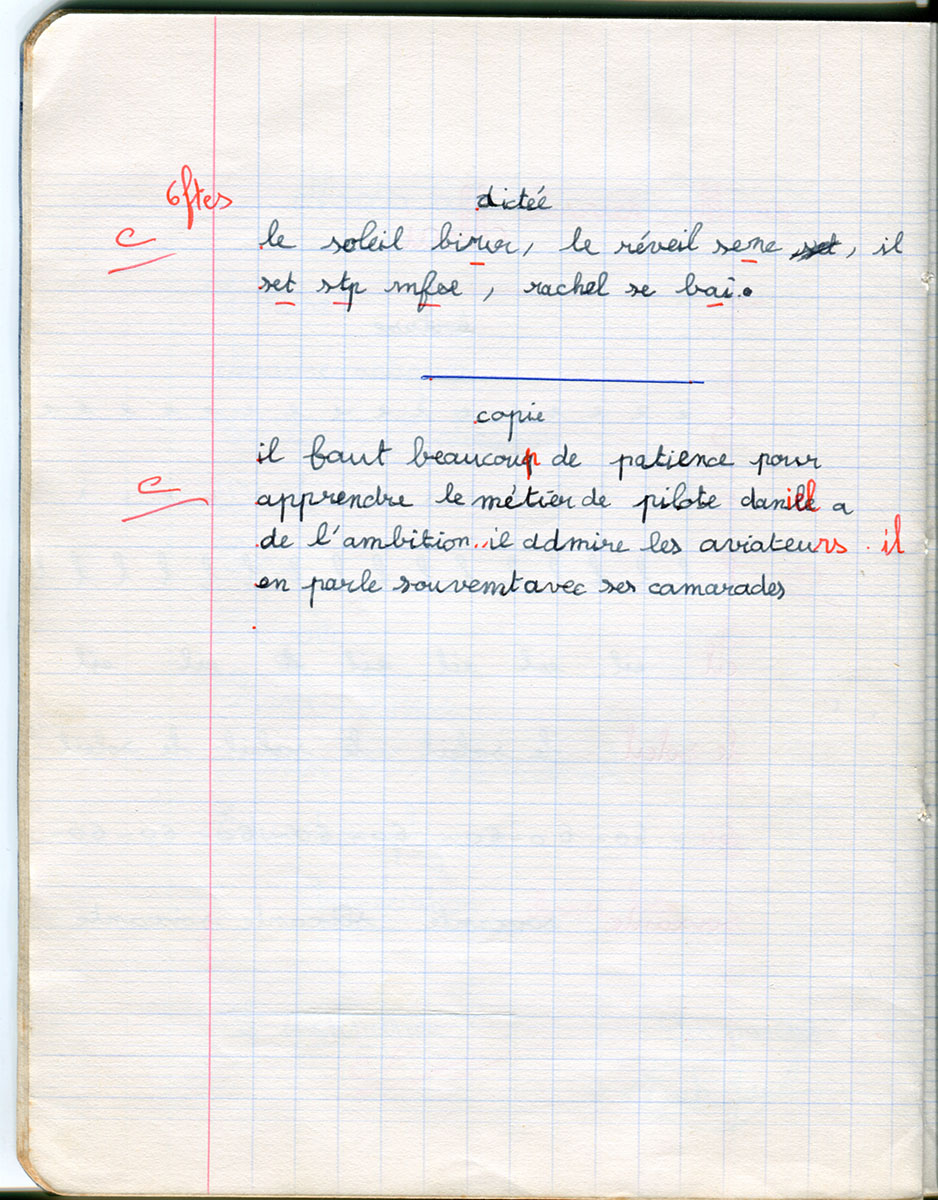 6ftes
dictée
c
le soleil birur, le réveil sene set, il
set stp mfoe, rachel se bai.
copie
il faut beaucoup de patience pour
c
apprendre le métier de pilote daniel a
de l'ambition.. il admire les aviateurs. il
en parle souvemt avec ses camarades